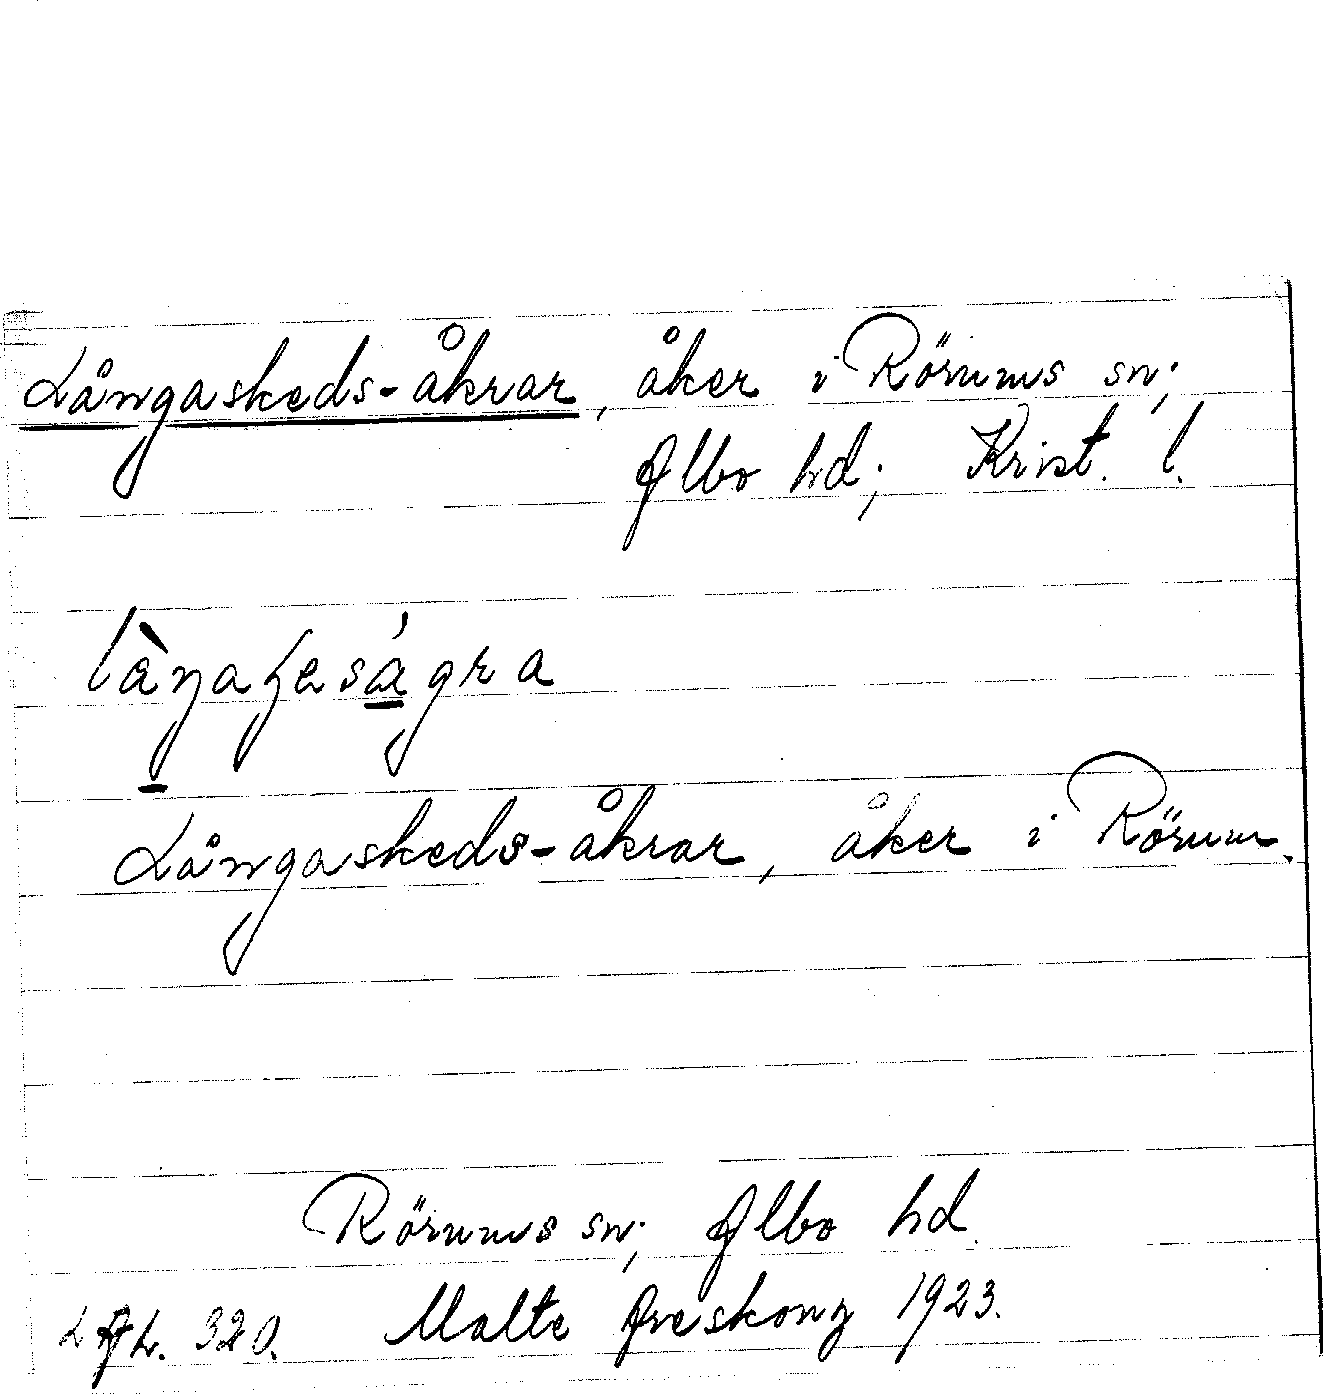 Långaskeds-åkrar, åker i Rörums sn;
Albo hd; Krist. l.
Långaskeds-åkrar, åker i Rörum.
Rörums sn; Albo hd.
320. Malte 1923.